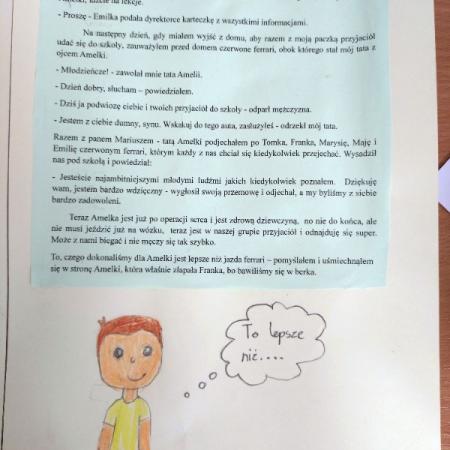 Amelki, każde na lekcje.
- Proszę - Emilka podała dyrektorce karteczkę z wszystkimi informacjami.
Na następny dzień, gdy miałem wyjść z domu, aby razem z moją paczką przyjaciół
udać się do szkoły, zauważyłem przed domem czerwone ferrari, obok którego stał mój tata z
ojcem Amelki.
- Młodzieńcze! - zawołał mnie tata Amelii.
- Dzień dobry, słucham – powiedziałem.
- Dziś ja podwiozę ciebie i twoich przyjaciół do szkoły - odparł mężczyzna.
- Jestem z ciebie dumny, synu. Wskakuj do tego auta, zasłużyłeś - odrzekł mój tata.
Razem z panem Mariuszem - tatą Amelki podjechałem po Tomka, Franka, Marysię, Maję i
Emilię czerwonym ferrari, którym każdy z nas chciał się kiedykolwiek przejechać. Wysadził
nas pod szkołą i powiedział:
- Jesteście najambitniejszymi młodymi ludźmi jakich kiedykolwiek poznałem. Dziękuję
wam, jestem bardzo wdzięczny - wygłosił swoją przemowę i odjechał, a my byliśmy z siebie
bardzo zadowoleni.
Teraz Amelka jest już po operacji serca i jest zdrową dziewczyną, no nie do końca, ale
nie musi jeździć już na wózku, teraz jest w naszej grupie przyjaciół i odnajduję się super.
Może z nami biegać i nie męczy się tak szybko.
To, czego dokonaliśmy dla Amelki jest lepsze niż jazda ferrari – pomyślałem i uśmiechnąłem
się w stronę Amelki, która właśnie złapała Franka, bo bawiliśmy się w berka.
To lepsze
niż....